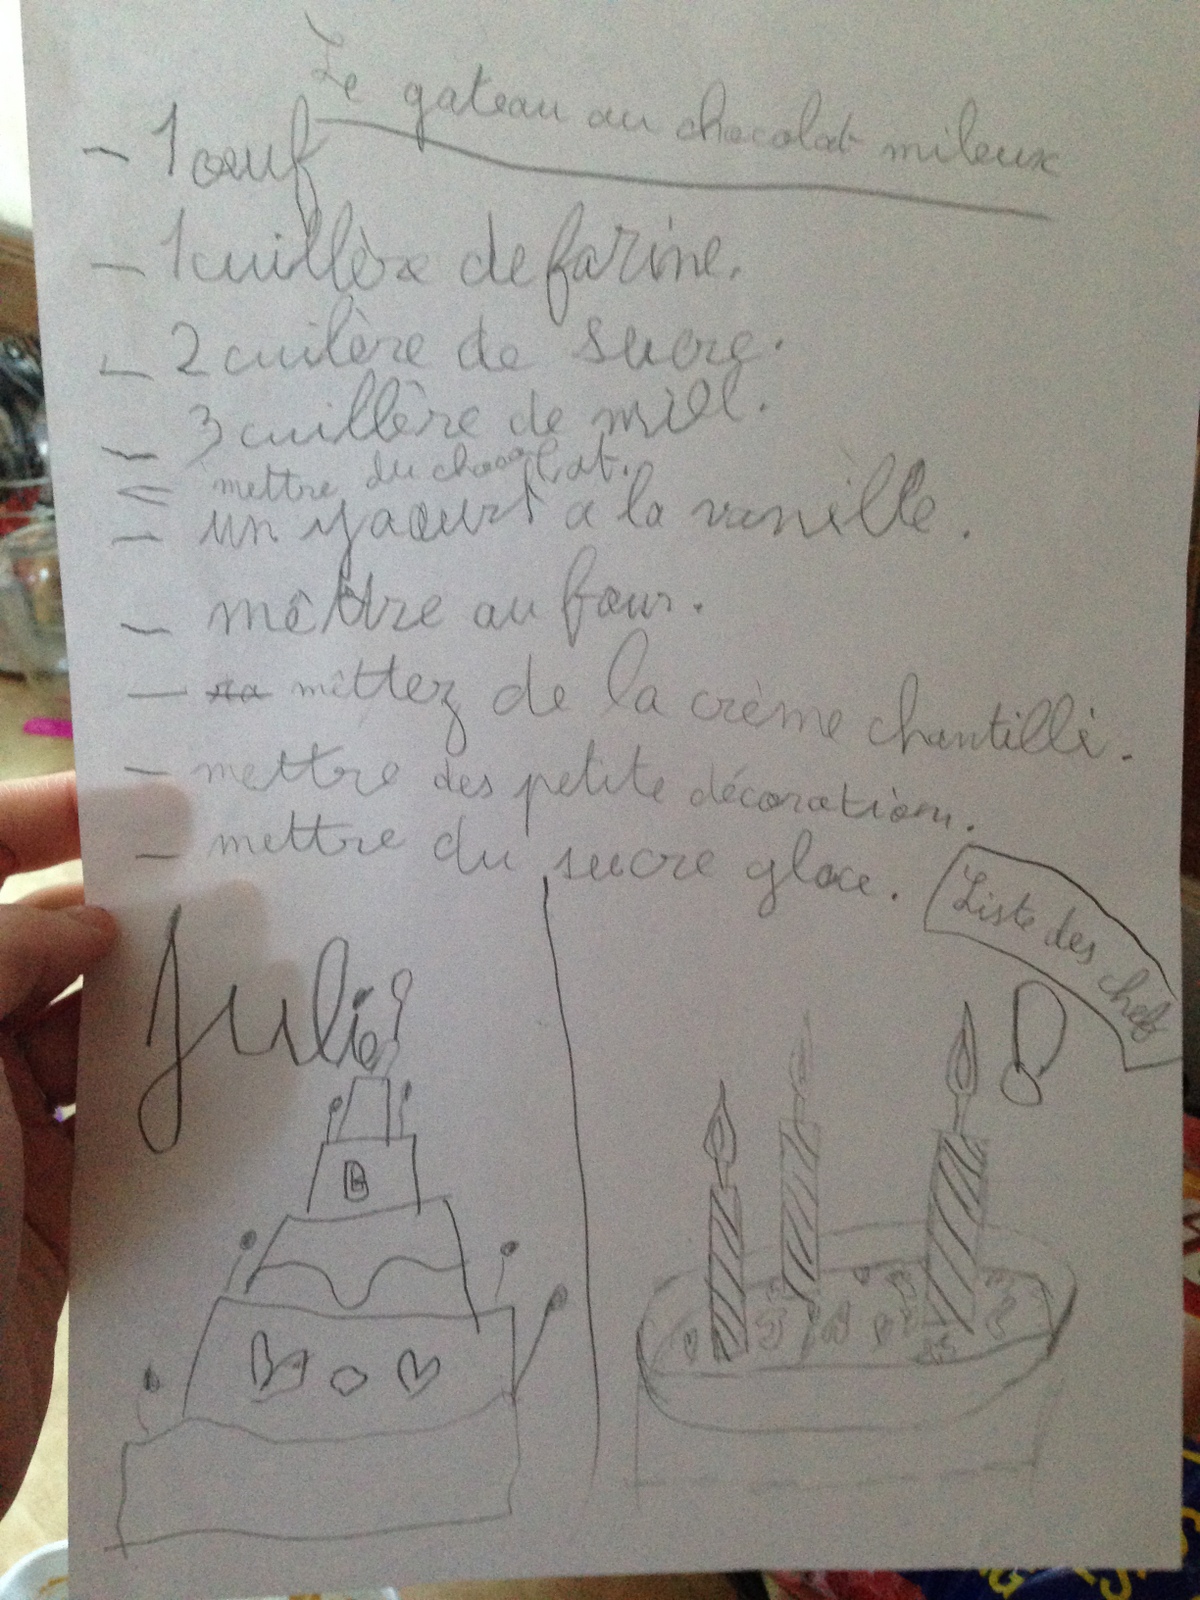 Le gateau au chocolat mileux
- 1 œuf
- 1 cuillère de farine.
- 2 cuilère de sucre.
- 3 cuillère de miel.
= mettre du chocolat.
- un yaourt a la vanille.
- mettre au four.
- mettez de la crème chantilli.
- mettre des petite décoration.
- mettre du sucre glace.
Liste des chefs
Julie